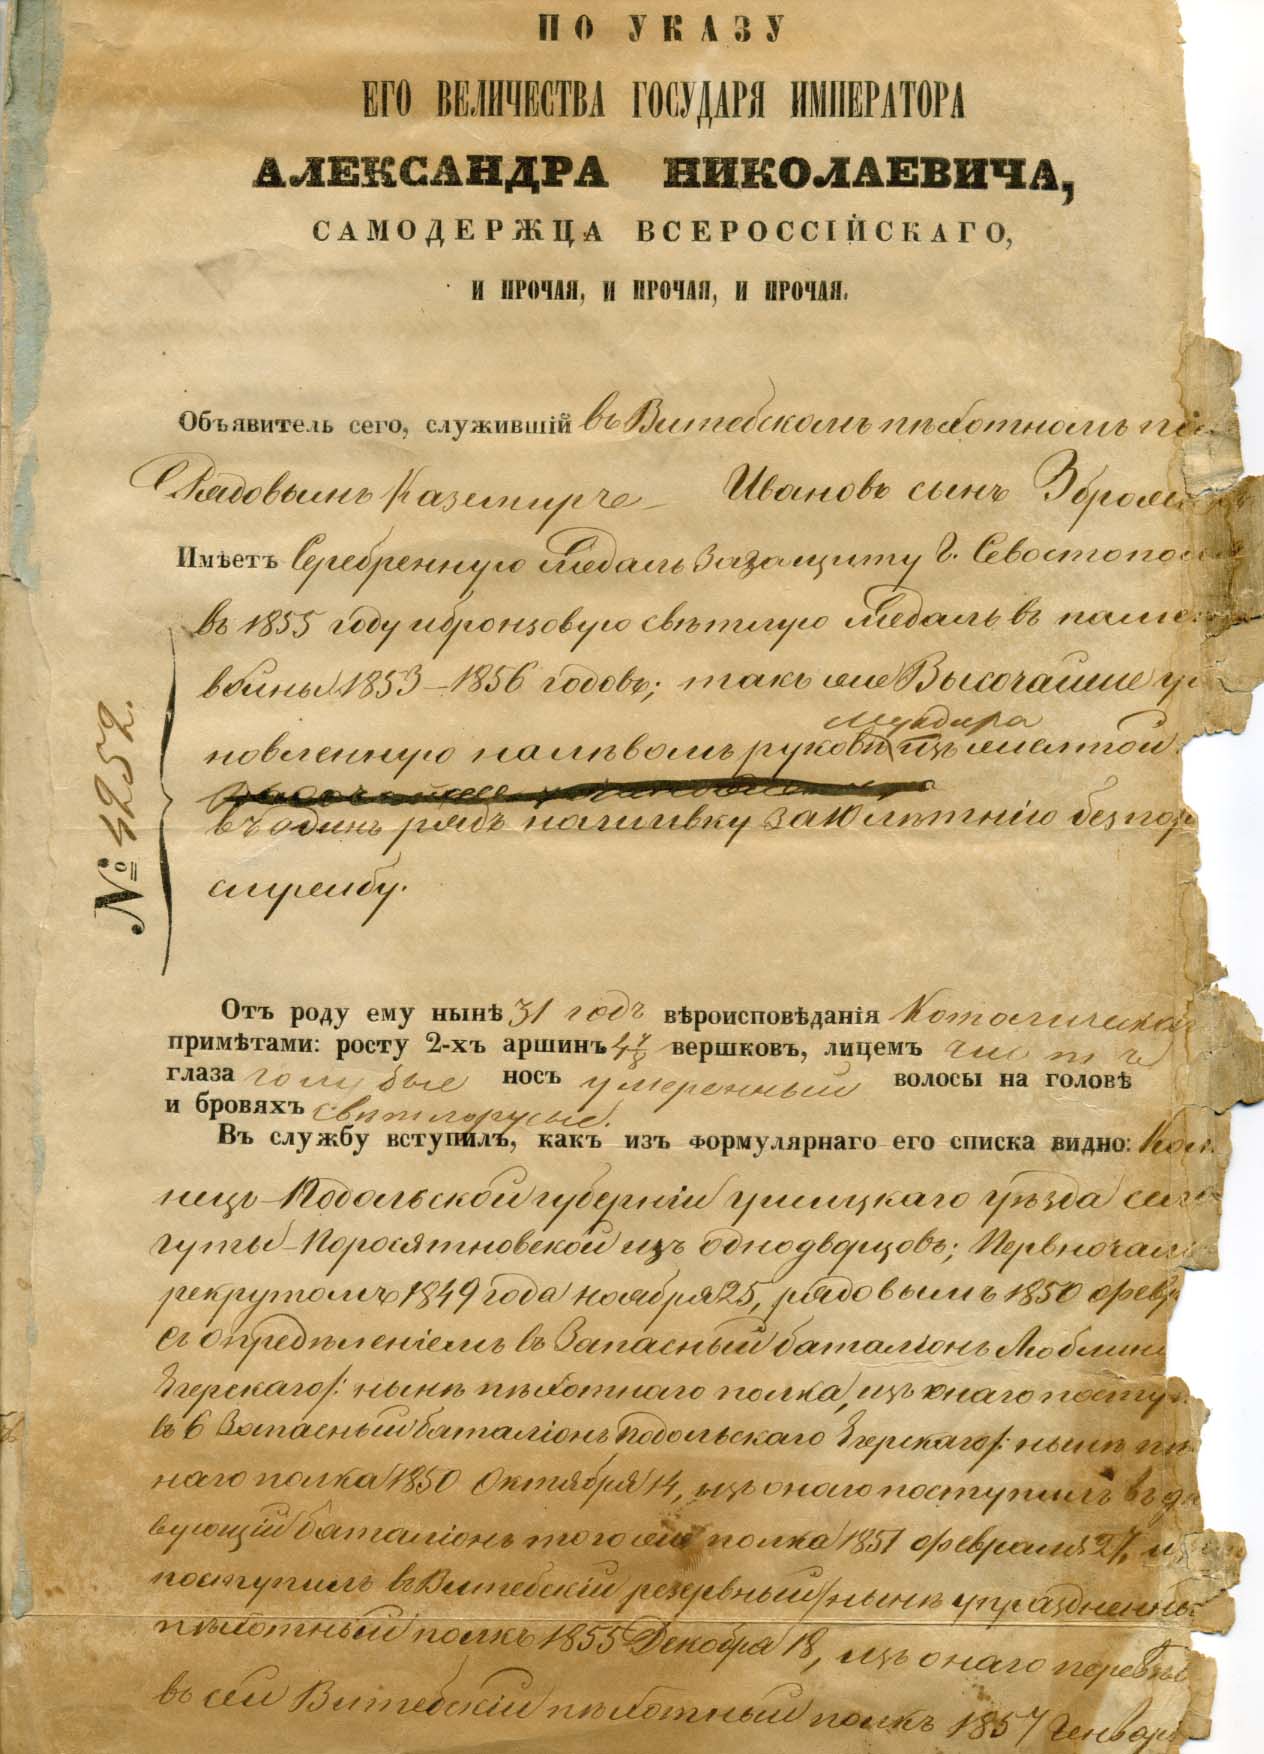 ПО УКАЗУ
ЕГО ВЕЛИЧЕСТВА ГОСУДАРЯ ИМПЕРАТОРА
АЛЕКСАНДРА НИКОЛАЕВИЧА,
САМОДЕРЖЦА ВСЕРОССІЙСКАГО,
И ПРОЧАЯ, И ПРОЧАЯ, И ПРОЧАЯ.
Объявитель сего, служившій въ Витебскомъ пѣхотномъ
Рядовымъ Ивановъ сынъ
Имѣетъ Серебренную Медаль за защиту г. Севостопо
въ 1855 году и бронзовую свѣтлую Медаль въ
войны 1853–1856 годовъ; такъ же Высочайше
мундира
новленную на лѣвомъ рукавѣ изъ желтой
въ одинъ рядъ нашивку за 10 лѣтнію безпор
службу.
№ 4252.
Отъ роду ему нынѣ 31 годъ вѣроисповѣданія
примѣтами: росту 2-хъ аршинъ 4 7/8 вершковъ, лицемъ чистъ
глаза голубые носъ умеренный волосы на головѣ
и бровяхъ свѣтлорусые.
Въ службу вступилъ, какъ изъ формулярнаго его списка видно:
нецъ-Подольской губерніи Ушицкаго уѣзда
изъ однодворцовъ;
рекрутомъ 1849 года ноября 25, рядовымъ 1850 февр
съ опредѣленіемъ въ Запасный баталіонъ Люблин
Егерскаго/: нынѣ пѣхотнаго полка, изъ онаго посту
въ 6 Запасный баталіонъ Подольскаго Егерскаго/: нынѣ пѣ
наго полка 1850 Октября 14, изъ онаго поступилъ въ дѣ
вующій баталіонъ того же полка 1851 февраля 27,
поступилъ въ Витебскій резервный /нынѣ упраздненны
пѣхотный полкъ 1855 Декабря 18, изъ онаго переве
въ сей Витебскій пѣхотный полкъ 1857 Генвар